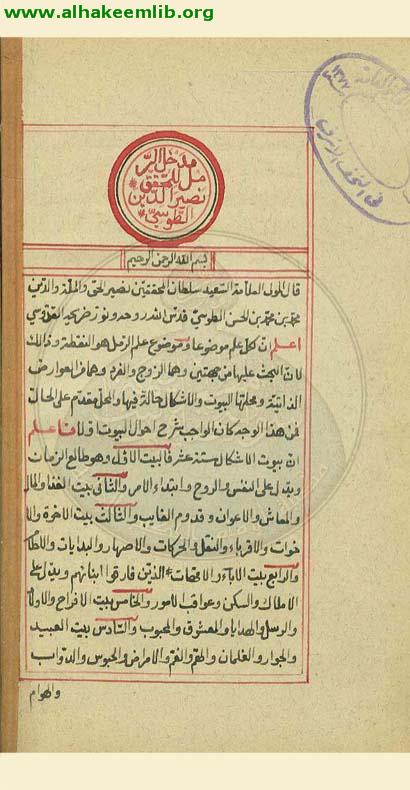 www.alhakeemlib.org
مدخل الر
مل للمحقق
نصير الدين
الطوسي
بسم الله الرحمن الرحيم
قال المولى العلامة السعيد سلطان المحققين نصير الحق والملة والدين
محمد بن محمد بن الحسن الطوسي قدس الله روحه ونور ضريحه القدوسي
اعلم ان لكل علم موضوعا وموضوع علم الرمل هو النقطة وذلك
لان البحث عليها من جهتين وهما الزوج والفرد وهما من العوارض
الذاتية ومحلها البيوت والاشكال حالة فيها والمحل مقدم على الحال
فمن هذا الوجه كان الواجب شرح احوال البيوت اولا فاعلم
ان بيوت الاشكال ستة عشر فالبيت الاول وهو طالع الزمان
ويدل على النفس والروح وابتداء الامر والثاني بيت والمال
والمعاش والاعوان وقدوم الغايب والثالث بيت الاخوة والا
خوات والاقرباء والنقل والحركات والاصهار والبدايات
والرابع بيت الآباء والامهات الذين فارقوا ابنائهم ويدل على
الاملاك والسكن وعواقب الامور والخامس بيت الافراح والاولاد
والرسل والهدايا والمعشوق والمحبوب والسادس بيت العبيد
والجوار والغلمان والهم والغم والامراض والحبوس والدواب
والهوام
١٣٧٧
في النجف الاشرف